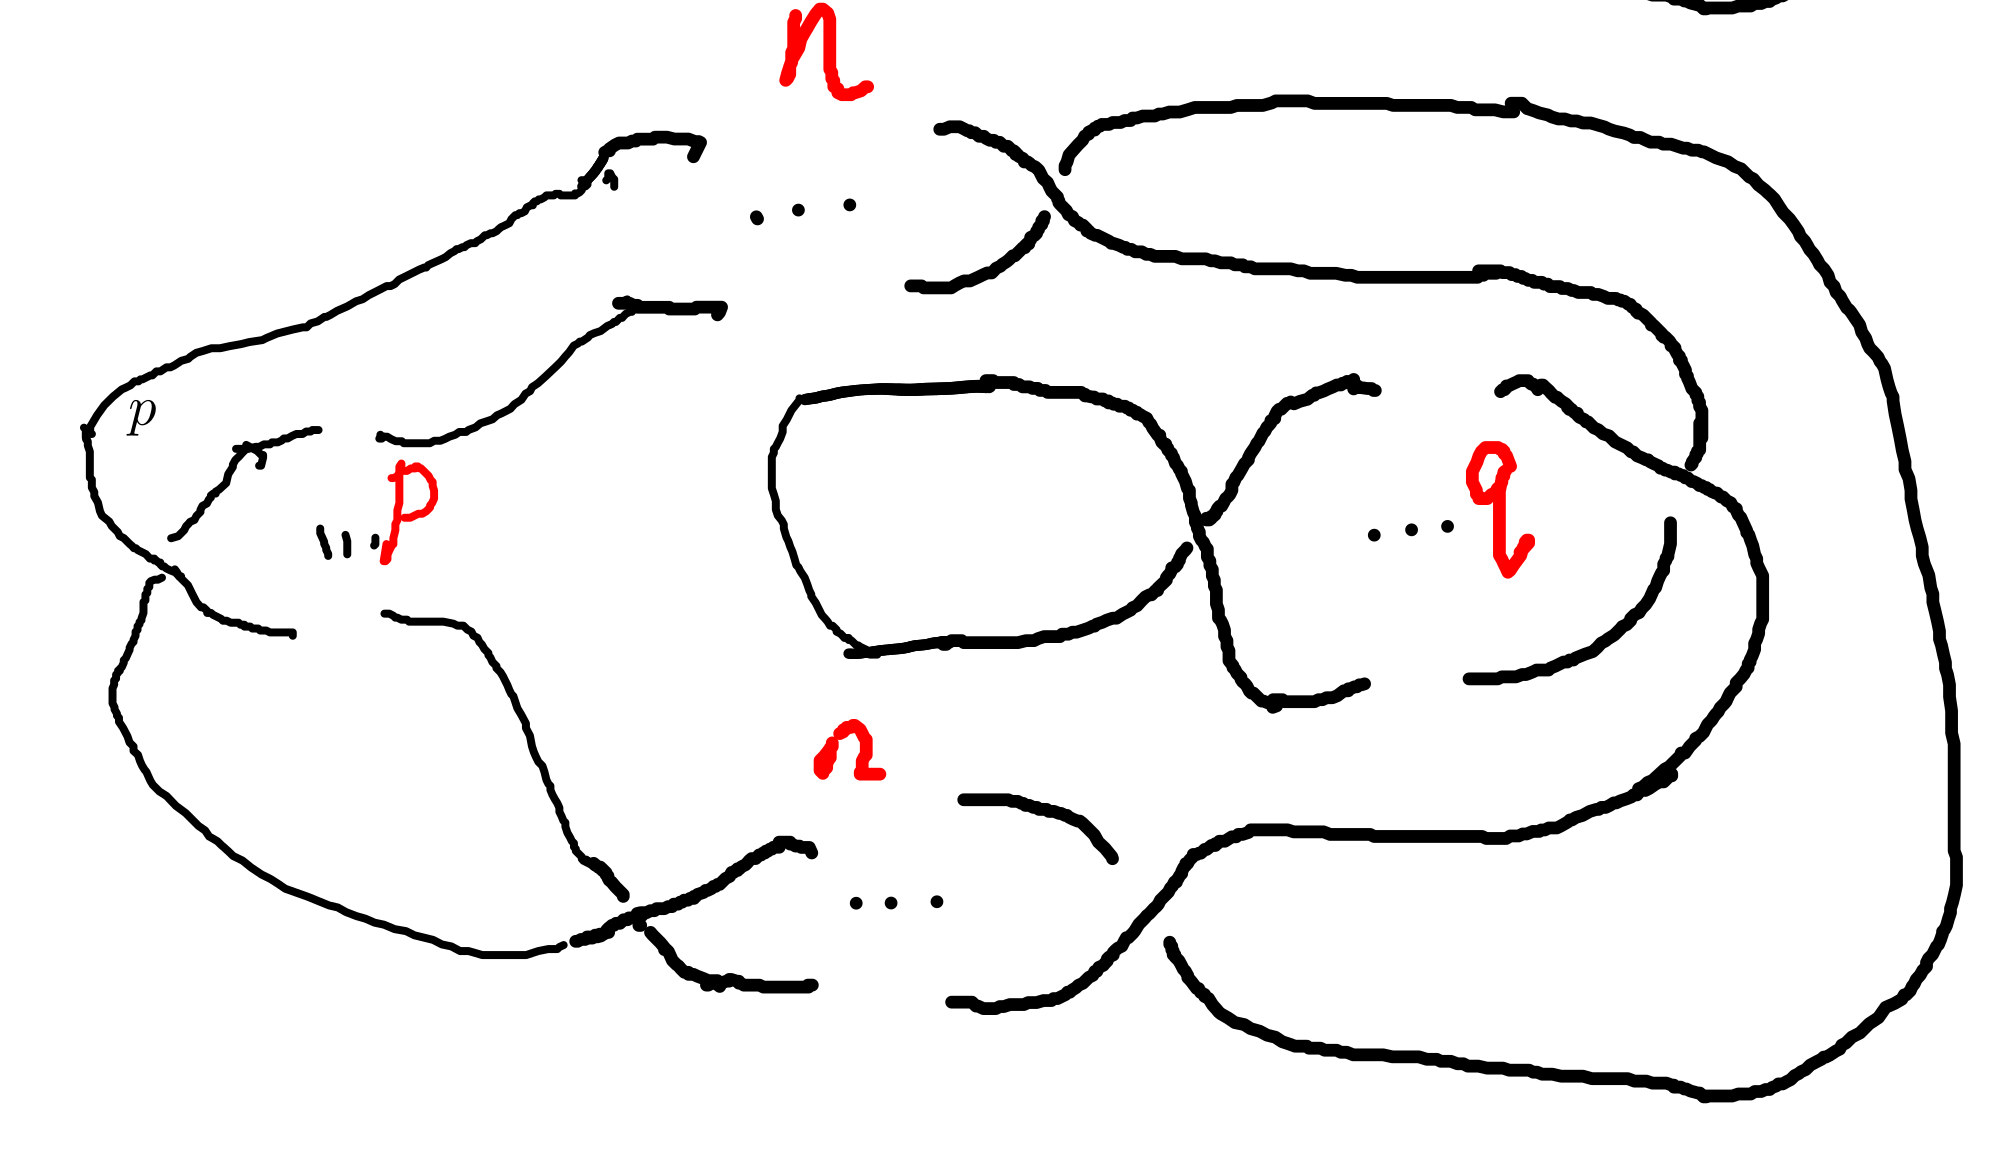 n
p
p
q
n